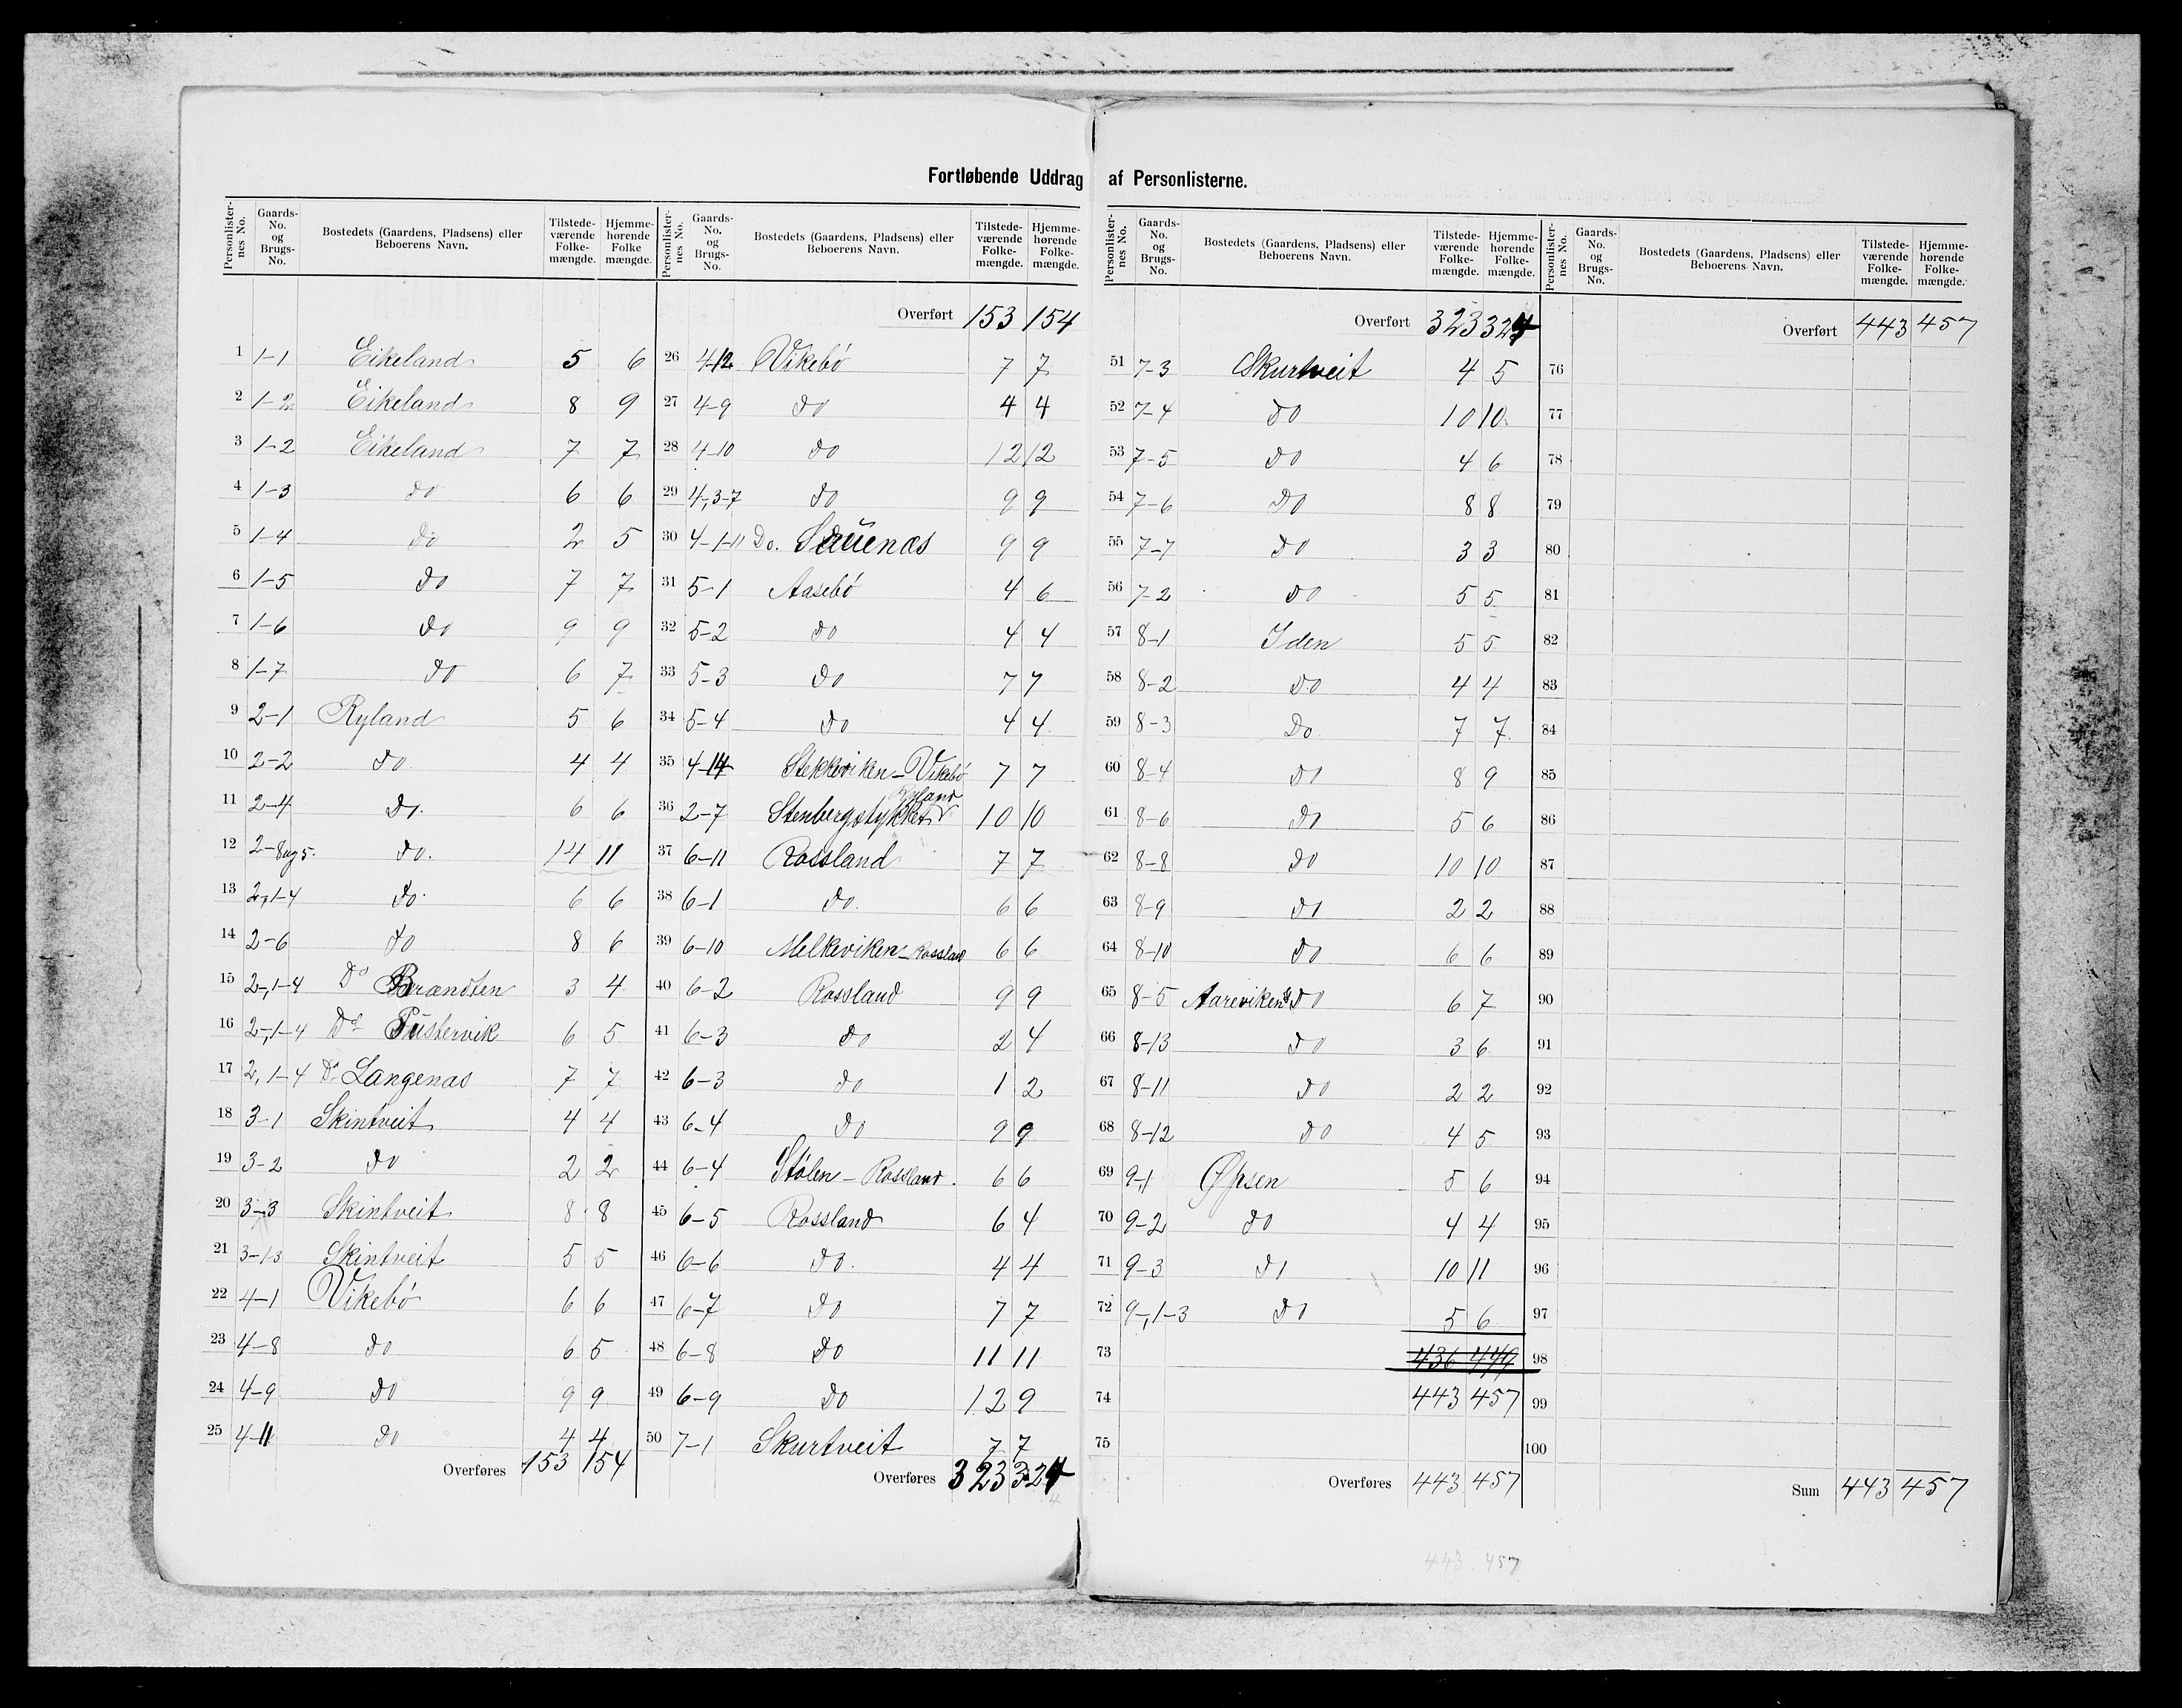 Fortløbende Uddrag af Personlisterne.
Personlister-nes No. Gaards-No. og Brugs-No. Bostedets (Gaardens, Pladsens) eller Beboerens Navn. Tilstede-værende Folke-mængde. Hjemme-hørende Folke mængde.
1 1-1 Eikeland 5 6
2 1-2 Eikeland 8 9
3 1-2 Eikeland 7 7
4 1-3 do 6 6
5 1-4 do 2 5
6 1-5 do 7 7
7 1-6 do 9 9
8 1-7 do 6 7
9 2-1 Ryland 5 6
10 2-2 do 4 4
11 2-4 do. 6 6
12 2-8og5. do. 14 11
13 2,1-4 do. 6 6
14 2-6 do 8 6
15 2-,1-4 Do Brandten 3 4
16 2-,1-4 Do Tustervik 6 5
17 2,1-4 Do Langenas 7 7
18 3-1 Skintveit 4 4
19 3-2 do 2 2
20 3-3 Skintveit 8 8
21 3-1-3 Skintveit 5 5
22 4-1 Vikebó 6 6
23 4-8 do 6 5
24 4-9 do 9 9
25 4-11 do 4 4
Overføres 153 154
Personlister-nes No. Gaards-No. og Brugs-No. Bostedets (Gaardens, Pladsens) eller Beboerens Navn. Tilstede-værende Folke-mængde. Hjemme-hørende Folke-mængde.
Overført 153 154
26 4-12 Vikebó 7 7
27 4-9 do 4 4
28 4-10 do 12 12
29 4,3-7 do 9 9
30 4-1-11 Do. Sauenas 9 9
31 5-1 Aasebó 4 6
32 5-2 do 4 4
33 5-3 do 7 7
34 5-4 do 4 4
35 4-14 Stekkeviken-Vikebó 7 7
36 2-7 Stenbergstykket Ryland 10 10
37 6-11 Rossland 7 7
38 6-1 do. 6 6
39 6-10 Melkeviken-Rossland 6 6
40 6-2 Rossland 9 9
41 6-3 do 2 4
42 6-3 do 1 2
43 6-4 do 9 9
44 6-4 Stólen-Rossland. 6 6
45 6-5 Rossland 6 4
46 6-6 do. 4 4
47 6-7 do 7 7
48 6-8 do 11 11
49 6-9 do 12 9
50 7-1 Skurtveit 7 7
Overføres 323 324
Personlister-nes No. Gaards-No. og Brugs-No. Bostedets (Gaardens, Pladsens) eller Beboerens Navn. Tilstede-værende Folke-mængde. Hjemme-hørende Folke-mængde.
Overført 323 324
51 7-3 Skurtveit 4 5
52 7-4 do 10 10.
53 7-5 do 4 6
54 7-6 do 8 8
55 7-7 do 3 3
56 7-2 do 5 5
57 8-1 Iden 5 5
58 8-2 do 4 4
59 8-3 Do 7 7.
60 8-4 do 8 9
61 8-6 do 5 6
62 8-8 do 10 10
63 8-9 do 2 2
64 8-10 do 6 6
65 8-5 Aareviken do 6 7
66 8-13 do 3 6
67 8-11 do 2 2
68 8-12 do 4 5
69 9-,1 Øpsen 5 6
70 9-2 do 4 4
71 9-3 do 10 11
72 9-,1-3 do 5 6
73 436 449
74 443 457
75
Overføres 443 457
443. 457
Personlister-nes No. Gaards-No. og Brugs-No. Bostedets (Gaardens, Pladsens) eller Beboerens Navn. Tilstede-værende Folke-mængde. Hjemme-hørende Folke-mængde.
Overført 443 457
76
77
78
79
80
81
82
83
84
85
86
87
88
89
90
91
92
93
94
95
96
97
98
99
100
Sum 443 457